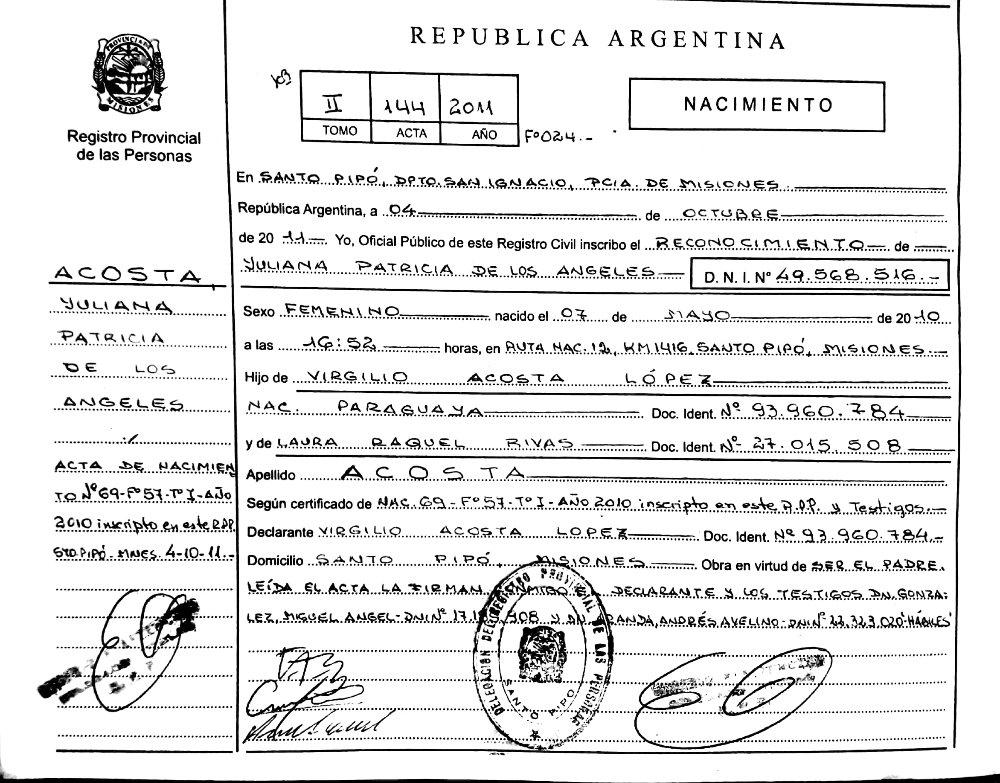 REPUBLICA ARGENTINA
PROVINCIA DE MISIONES
Registro Provincial
de las Personas
103
II 144 2011
TOMO ACTA AÑO
Fº024.-
NACIMIENTO
En SANTO PIPÓ, DPTO. SAN IGNACIO, PCIA. DE MISIONES.
República Argentina, a 04 de OCTUBRE
de 20 11 Yo, Oficial Público de este Registro Civil inscribo el RECONOCIMIENTO de
YULIANA PATRICIA DE LOS ANGELES D. N. I. Nº 49.568.516.-
Sexo FEMENINO nacido el 07 de MAYO de 2010
a las 16:52 horas, en RUTA NAC. 12, KM 1416, SANTO PIPÓ, MISIONES.-
Hijo de VIRGILIO ACOSTA LÓPEZ
NAC. PARAGUAYA Doc. Ident. Nº 93.960.784
y de LAURA RAQUEL RIVAS Doc. Ident. Nº 27.015.508
Apellido ACOSTA
Según certificado de NAC. 69 - Fº 57 - Tº I - AÑO 2010 inscripto en este R.P.P. y Testigos.
Declarante VIRGILIO ACOSTA LOPEZ Doc. Ident. Nº 93.960.784.-
Domicilio SANTO PIPÓ, MISIONES Obra en virtud de SER EL PADRE.
LEÍDA EL ACTA LA FIRMAN DECLARANTE Y LOS TESTIGOS DN. GONZA-
LEZ, MIGUEL ANGEL - DNI Nº 908 Y DN ANDRÉS AVELINO - DNI Nº 22.323.020 - HÁBILES
ACOSTA
YULIANA
PATRICIA
DE LOS
ANGELES
./
ACTA DE NACIMIEN
TO Nº69-Fº57-TºI-AÑO
2010 inscripto en este R.P.P.
STO. PIPÓ - MNES. 4-10-11.-
DELEGACIÓN DEL REGISTRO PROVINCIAL DE LAS PERSONAS
SANTO PIPO